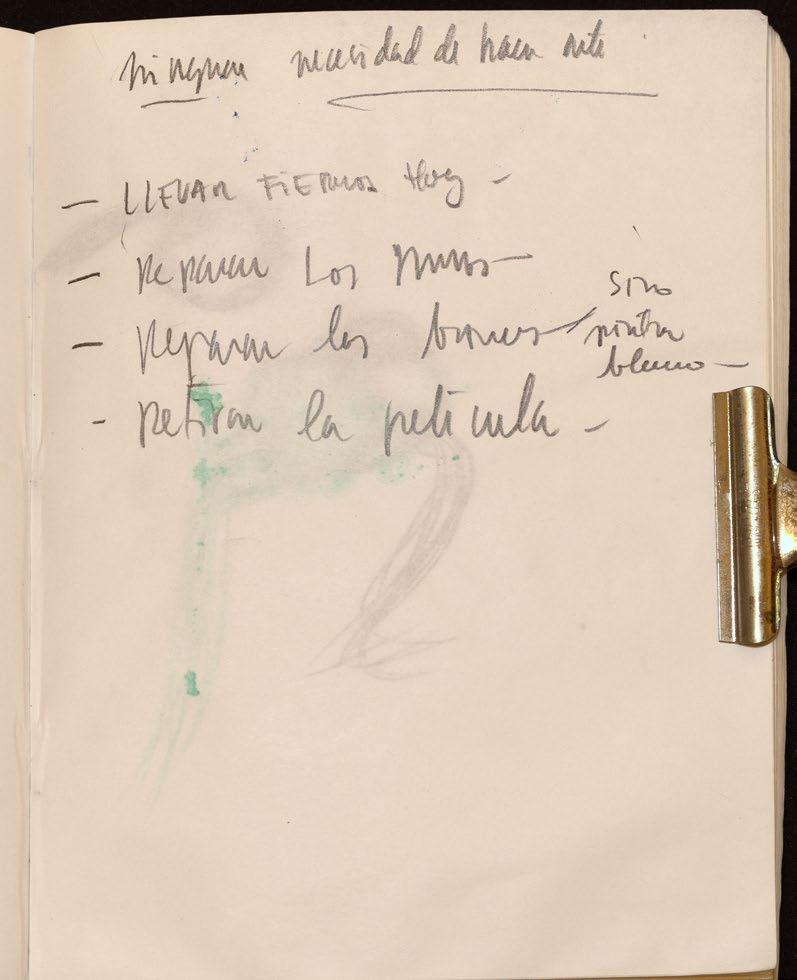 ninguna necesidad de hacer arte
- LLEVAR FIERROS Hoy -
- Reparar Los muros -
- Reparar los
sino
pintura
blanco -
- Retirar la pelicula -